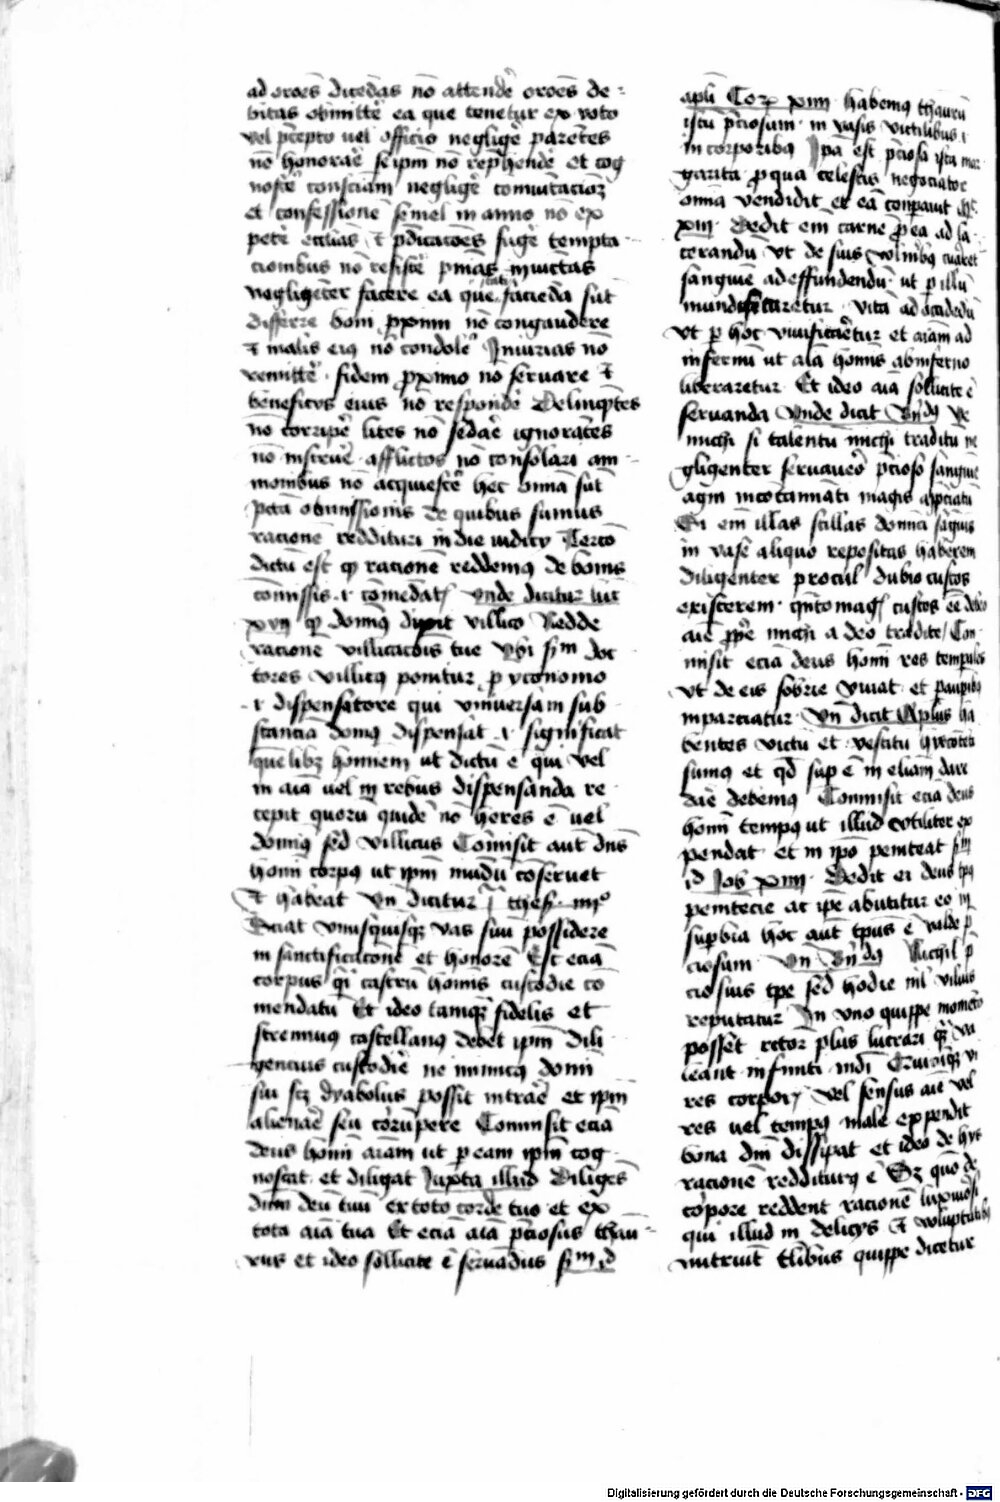 ad oroēs dicēdas nō attendē oroēs de
bitas obmittē ea que tenetur ex voto
vel p̄cepto uel officio negligē parētes
nō honorāe seipm nō rep̄hendē et cog
noscē consciam negligē
et confessionē semel in anno nō ex
petē ecclias & p̄dicatōes fugē tempta
cionibus nō resistē
negligēter facere ea que faciēda sūt
differre boni pxīmi nō congaudere
& malis eiꝰ nō condolē Iniurias nō
remittē fidem ꝓxīmo nō seruare &
beneficys eius nō respondē Delinqn̄tes
nō corripē lites nō sedāe ignorātes
nō instruē afflictos nō consolari am
monibus nō acquiescē hec om̄ia sūt
pctā obmissionis de quibus sumus
racionē reddituri in die iudicij Tercō
dictū est ꝙ racionē reddemꝰ de bonis
cōmissis Vnde dicitur luc
xvij ꝙ domīꝰ dixit villico Redde
racionē villicacōis tue Vbi sm doc
tores villicꝰ ponitur ꝓ yconomo
i dispensatore qui vniuersam sub
stanciā domꝰ dispensat i significat
quēlibꝫ hominem ut dictū ē qui vel
in aīa uel in rebus dispensanda re
cepit quorū quidē nō heres ē uel
domīꝰ sed villicus Cōmisit aut dn̄s
homī corpꝰ ut ipm mūdū cōseruet
& habeat Vn̄ dicitur i thes iiijº
Sciat vnusquisqꝫ vas suū possidere
in sanctificatōne et honorē Est eciā
corpus qi castrū homīs custodie cō
mendatū Et ideo tamqꝫ fidelis et
strennuꝰ castellanꝰ debet ipm dili
gencius custodīe ne inimicꝰ domī
sui scꝫ dyabolus possit intrāe et ipm
alienāe seu corrūpere Commisit eciā
deus homī aīam ut p eam ipm cog
noscat et diligat Iuxta illud Diliges
dnm deū tuū ex toto corde tuo et ex
tota aīa tua Et eciā aīa p̄ciosus thau
rus et ideo sollicite ē seruādus sm id
apli Cor xiiij habemꝰ thaurū
istū p̄ciosum in vasis victilibus i
in corporibꝰ Ipa est p̄ciosa ista mar
garita ꝓ qua celestis negociator
om̄ia vendidit et eā conparauit
xiij Dedit em carnē ꝓ ea ad la
cerandū ut de suis volnibꝰ
sanguinē ad effundendū ut p illū
mundaretur vitā ad
ut p hoc viuificaetur et aīam ad
infernū ut aīa homīs ab inferno
liberaretur Et ideo aīa sollicite ē
seruanda Vnde dicit
michi si talentū michi traditū ne
gligenter seruauero p̄cioso sanguīe
agni
Si em illas stillas domīci sāguīs
in vase aliquo repositas haberem
diligenter procul dubio custos
existerem custos eē debeo
aīe michi a deo tradite Com
misit eciā deus homī res temporales
ut de eis sobrie viuat et paupibꝰ
inparciatur Vn̄ dicit Aplus ha
bentes victū et vestitū
sumꝰ et qd sup ē in eliām dare
debemꝰ Commisit eciā deus
homī tempꝰ ut illud vtiliter ex
pendat et in ipō peniteat sm
id Iob xiiij Dedit ei deus
penitēcie at ipe abutitur eo in
supbia hoc aut tpus ē valde p
ciosum Vn̄ Nichil p
ciosius tpe sed hodie nil vilius
reputatur In vno quippe momēto
posset plus lucrari
valeant infiniti
res corpory vel sensus aut vel
res uel tempꝰ male expendit
bona dm̄ dissipat et ideo de hys
racionē redditurꝰ ē
corpore reddent racionē luxuriosi
qui illud in delicys & voluptatibꝰ
nutriunt talibus quippe dicetur
Digitalisierung gefördert durch die Deutsche Forschungsgemeinschaft - DFG